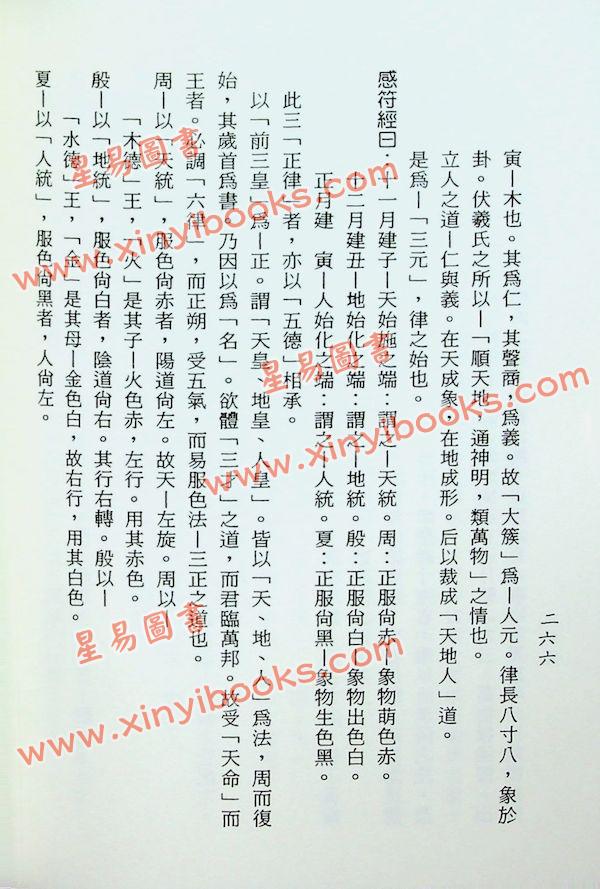 二六六
寅—木也。其爲仁，其聲商，爲義。故「大簇」爲—人元。律長八寸八，象於
卦。伏羲氏之所以—「順天地，通神明，類萬物」之情也。
立人之道—仁與義。在天成象，在地成形。后以裁成「天地人」道。
是爲—「三元」，律之始也。
感符經曰：十一月建子—天始施之端：謂之—天統。周：正服尙赤—象物萌色赤。
十二月建丑—地始化之端：謂之—地統。殷：正服尙白—象物出色白。
正月建　寅—人始化之端：謂之—人統。夏：正服尙黑—象物生色黑。
此三「正律」者，亦以「五德」相承。
以「前三皇」爲—正。謂「天皇、地皇、人皇」。皆以「天、地、人」爲法，周而復
始，其歲首爲書。乃因以爲「名」。欲體「三才」之道，而君臨萬邦。故受「天命」而
王者。必調「六律」，而正朔，受五氣，而易服色法—三正之道也。
周—以「天統」，服色尙赤者，陽道尙左。故天—左旋。周以
「木德」王，「火」是其子—火色赤，左行。用其赤色。
殷—以「地統」，服色尙白者，陰道尙右。其行右轉。殷以—
「水德」王，「金」是其母—金色白，故右行，用其白色。
夏—以「人統」，服色尙黑者，人尙左。
星易圖書
www.xinyibooks.com
星易圖書
www.xinyibooks.com
星易圖書
www.xinyibooks.com